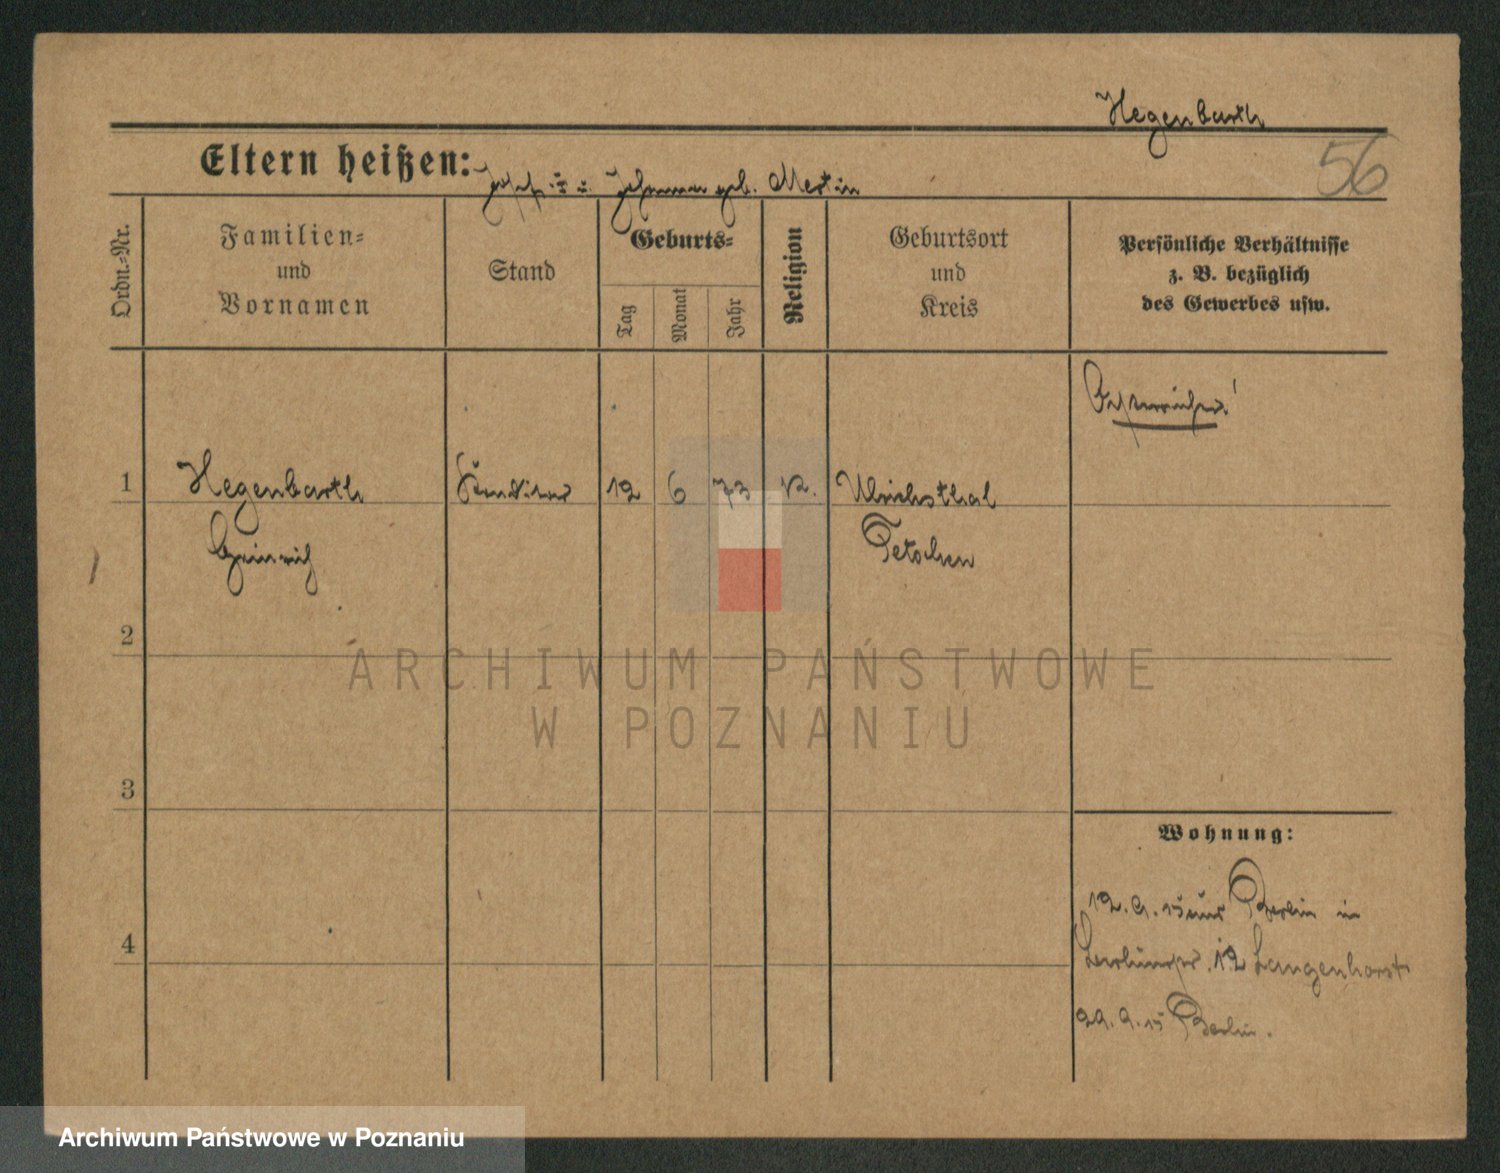 Hegenbarth
56
Eltern heißen: Josef u. Johanna geb. Mertin
Ordn.=Nr.
Familien=
und
Vornamen
Stand
Geburts=
Tag
Monat
Jahr
Religion
Geburtsort
und
Kreis
Persönliche Verhältnisse
z. B. bezüglich
des Gewerbes usw.
Österreicher!
1 Hegenbarth Konditor 12 6 73 K. Ulrichsthal
Heinrich Tetschen
2
ARCHIWUM PAŃSTWOWE
W POZNANIU
3
Wohnung:
12. 9. 15 aus Berlin in
4
12 Langenhorst
29. 9. 15 Berlin.
Archiwum Państwowe w Poznaniu